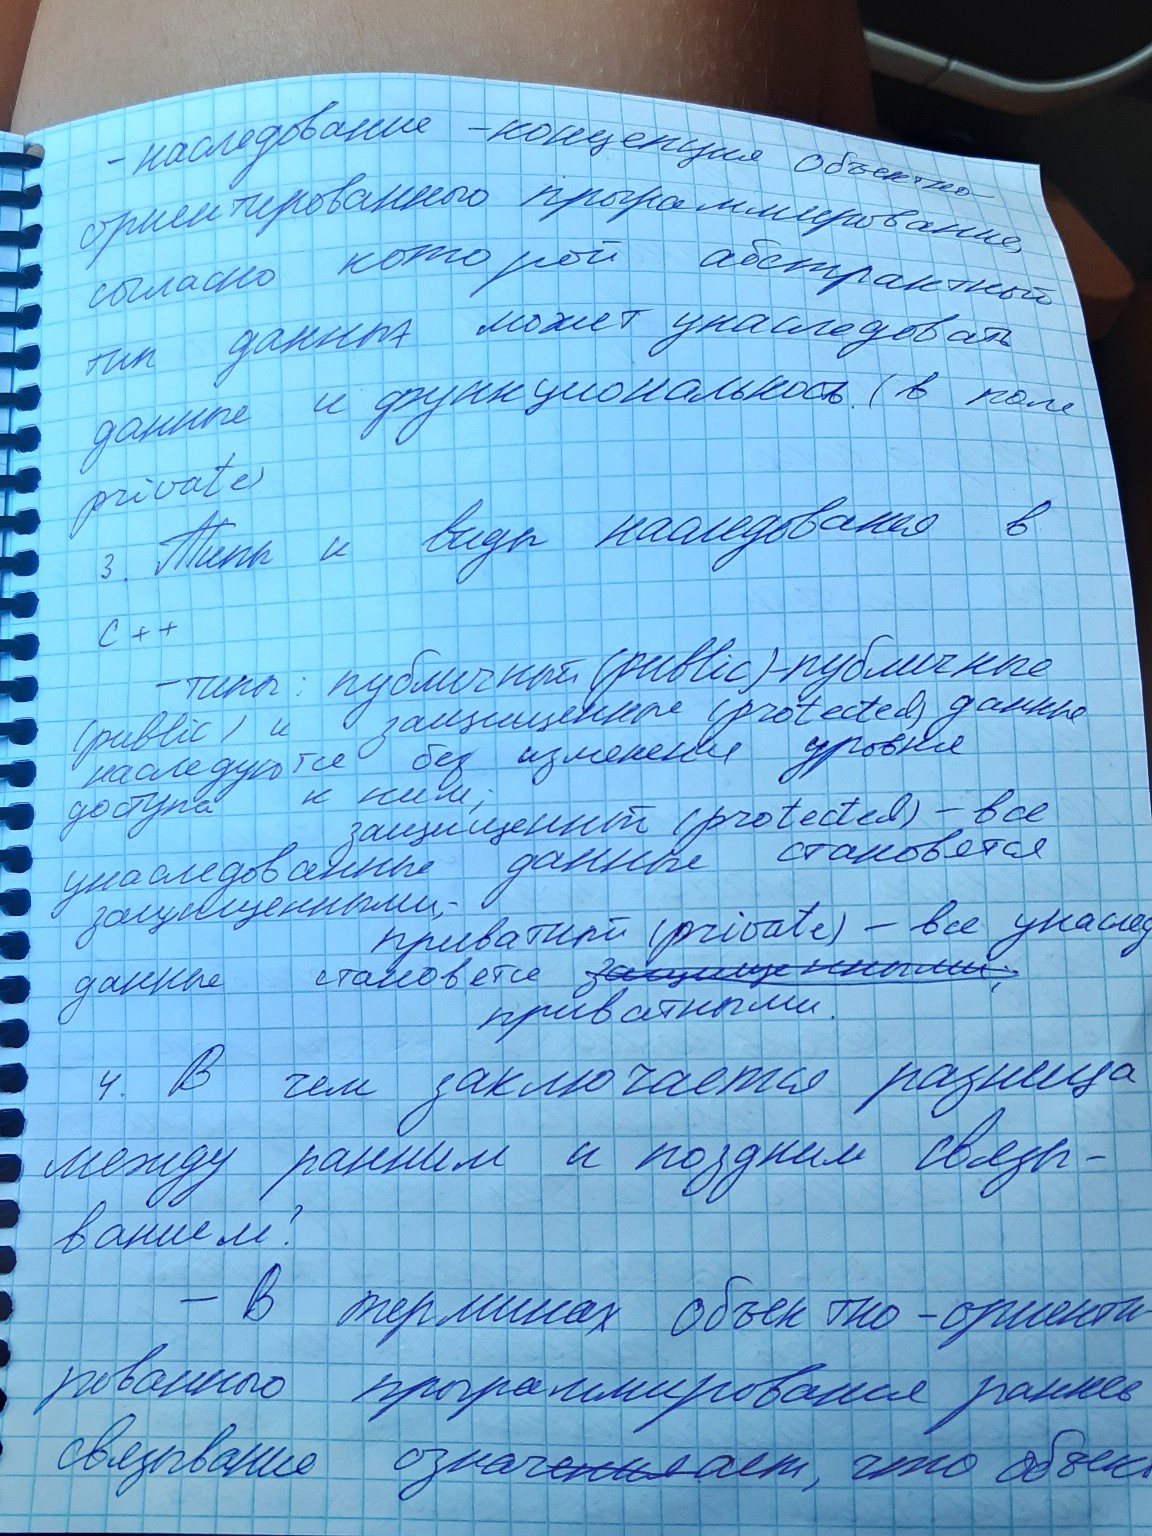 - наследование - концепция объектно-
ориентированного программирование,
согласно которой абстрактный
тип данных может унаследовать
данные и функциональность. (в поле
private)
3. Типы и виды наследования в
C++
- типы: публичный (public) - публичные
(public) и защищенные (protected) данные
наследуются без изменения уровня
доступа к ним;
защищенный (protected) - все
унаследованные данные становятся
защищенными;
приватный (private) - все унаслед
данные становятся защищенными;
приватными.
4. В чем заключается разница
между ранним и поздним связы-
ванием?
- В терминах объектно-ориенти-
рованного программирования раннее
связывание означает, что объек